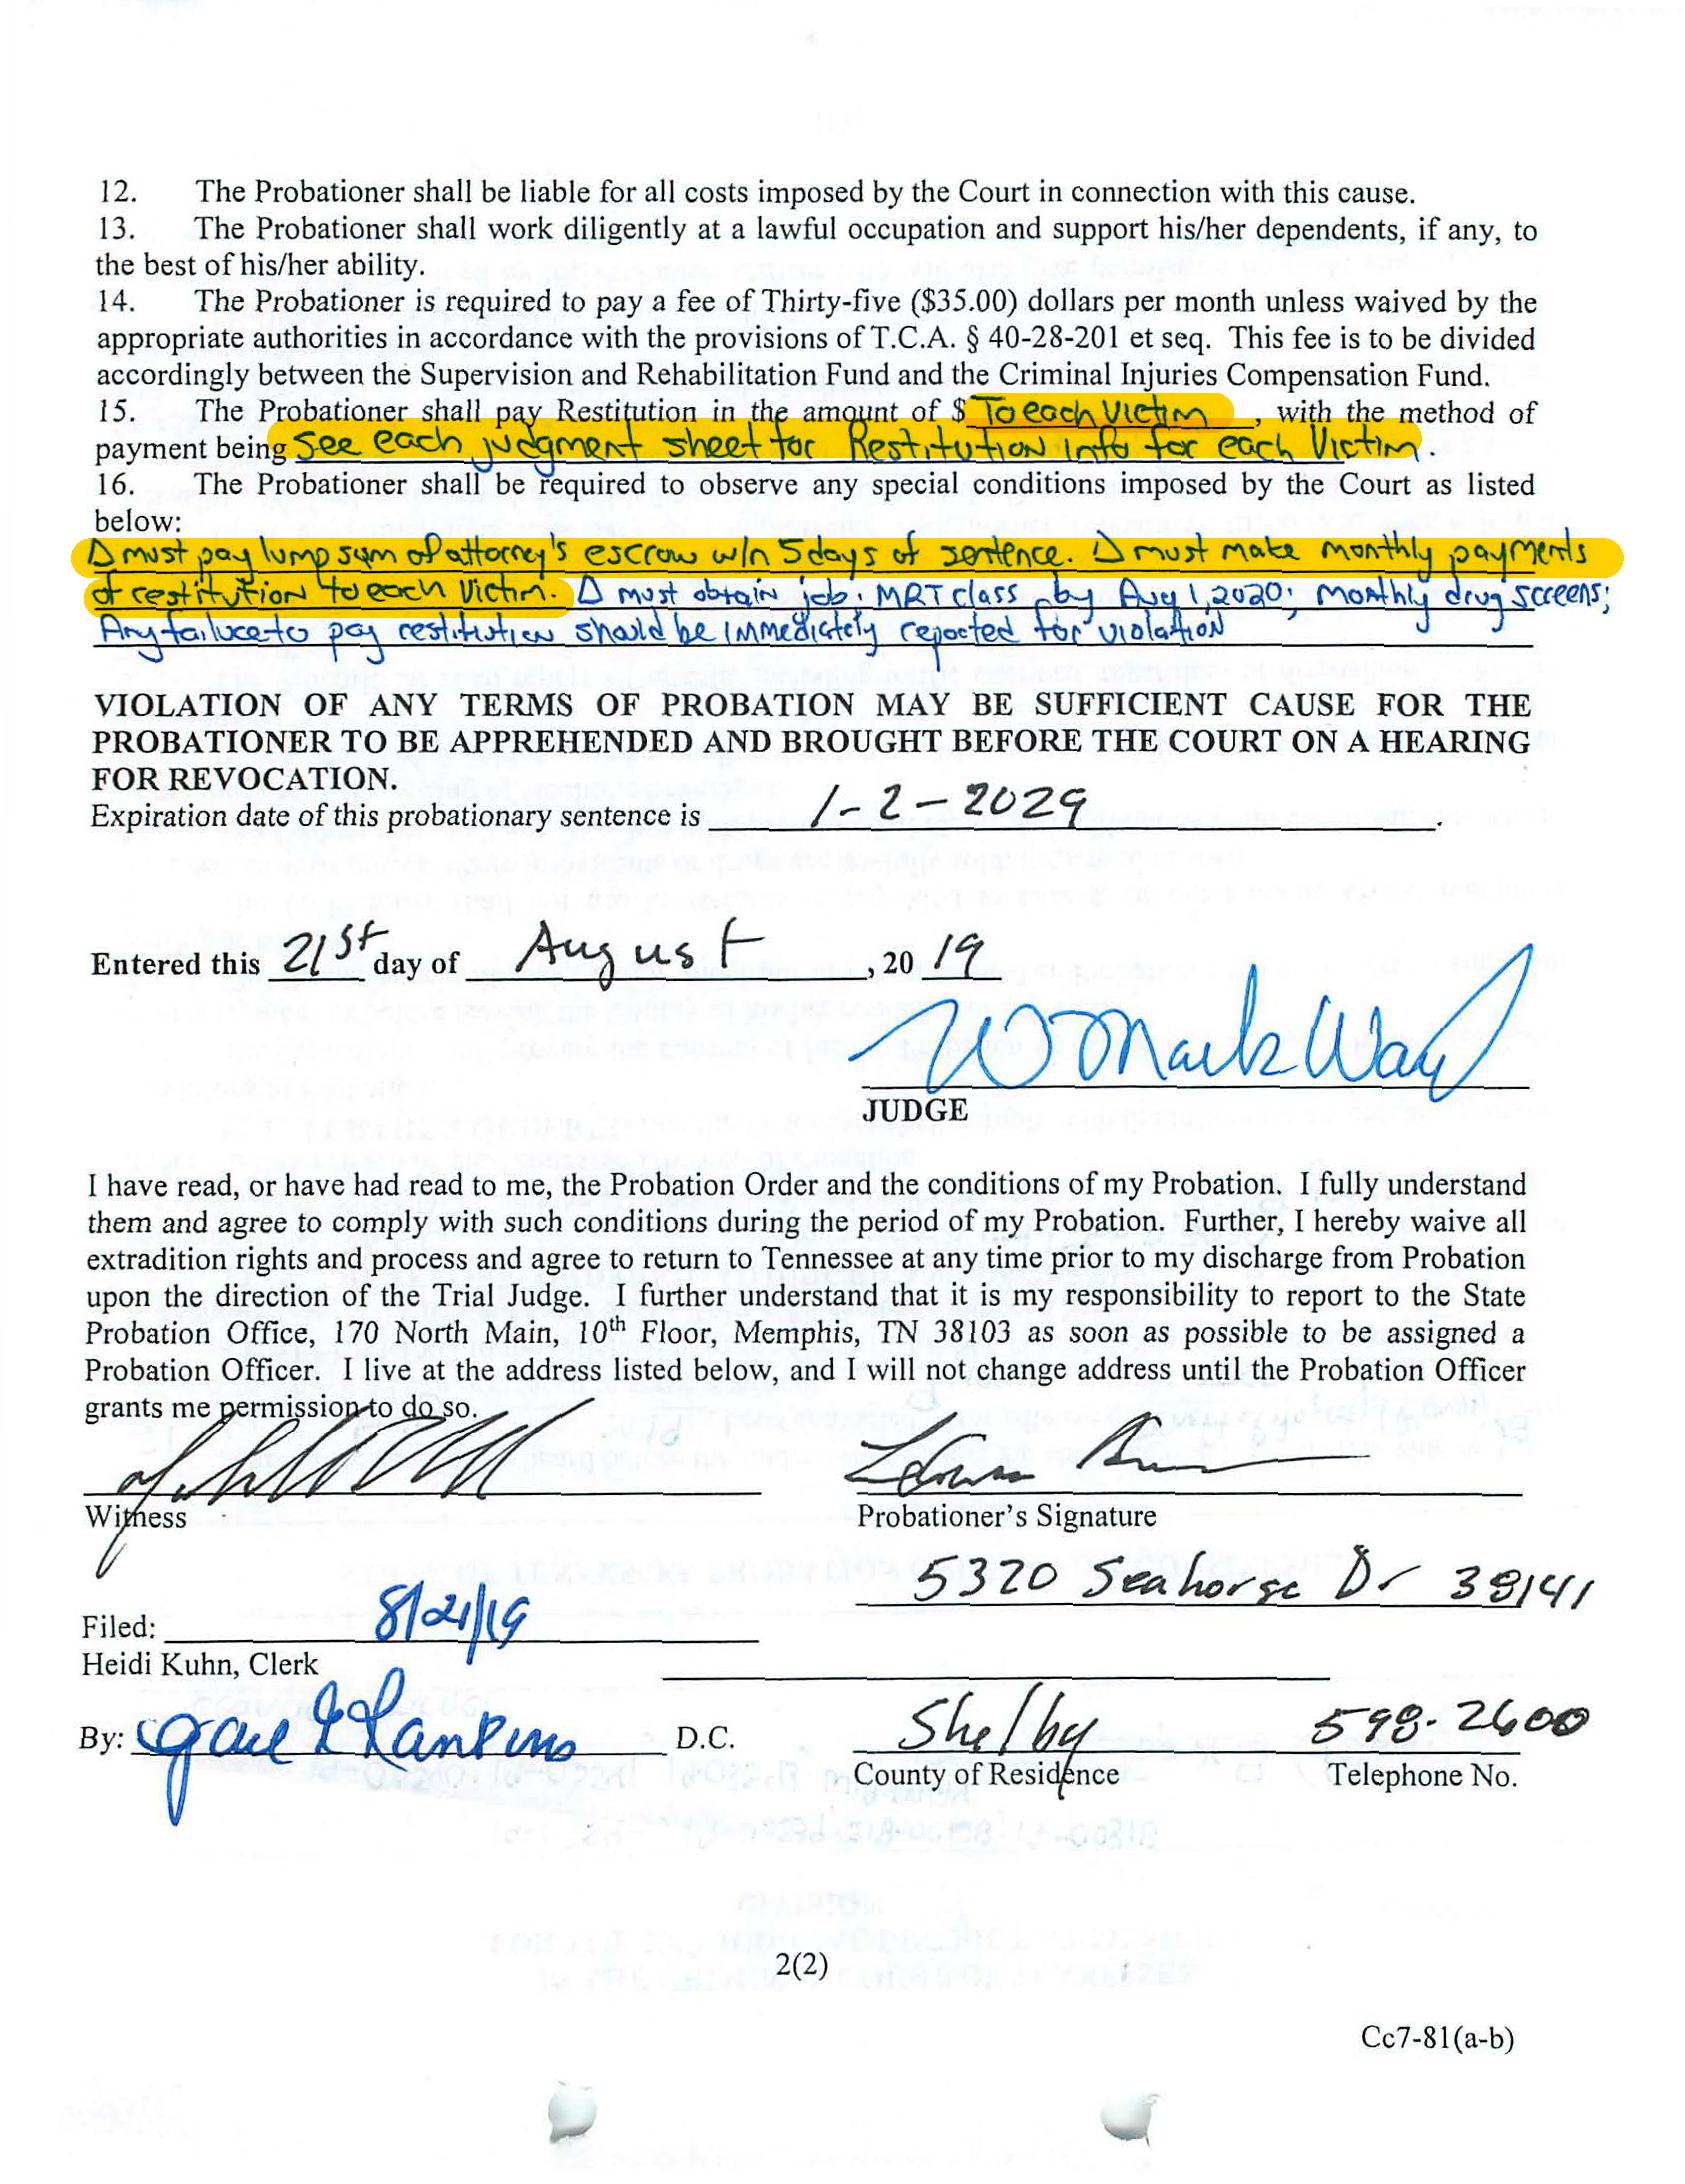 12. The Probationer shall be liable for all costs imposed by the Court in connection with this cause.
13. The Probationer shall work diligently at a lawful occupation and support his/her dependents, if any, to
the best of his/her ability.
14. The Probationer is required to pay a fee of Thirty-five ($35.00) dollars per month unless waived by the
appropriate authorities in accordance with the provisions of T.C.A. § 40-28-201 et seq. This fee is to be divided
accordingly between the Supervision and Rehabilitation Fund and the Criminal Injuries Compensation Fund.
15. The Probationer shall pay Restitution in the amount of $ To each Victim, with the method of
payment being See each judgment sheet for Restitution info for each Victim.
16. The Probationer shall be required to observe any special conditions imposed by the Court as listed
below:
Δ must pay lump sum of attorney's escrow w/n 5 days of sentence. Δ must make monthly payments
of restitution to each Victim. Δ must obtain job; MRT class by Aug 1, 2020; monthly drug screens;
Any failure to pay restitution should be immediately reported for violation
VIOLATION OF ANY TERMS OF PROBATION MAY BE SUFFICIENT CAUSE FOR THE
PROBATIONER TO BE APPREHENDED AND BROUGHT BEFORE THE COURT ON A HEARING
FOR REVOCATION.
Expiration date of this probationary sentence is 1-2-2029.
Entered this 21st day of August, 20 19
W Mark Ward
JUDGE
I have read, or have had read to me, the Probation Order and the conditions of my Probation. I fully understand
them and agree to comply with such conditions during the period of my Probation. Further, I hereby waive all
extradition rights and process and agree to return to Tennessee at any time prior to my discharge from Probation
upon the direction of the Trial Judge. I further understand that it is my responsibility to report to the State
Probation Office, 170 North Main, 10th Floor, Memphis, TN 38103 as soon as possible to be assigned a
Probation Officer. I live at the address listed below, and I will not change address until the Probation Officer
grants me permission to do so.
Witness Probationer's Signature
5320 Seahorse Dr 38141
Filed: 8/21/19
Heidi Kuhn, Clerk
By: D.C. Shelby 598-2600
County of Residence Telephone No.
2(2)
Cc7-81(a-b)